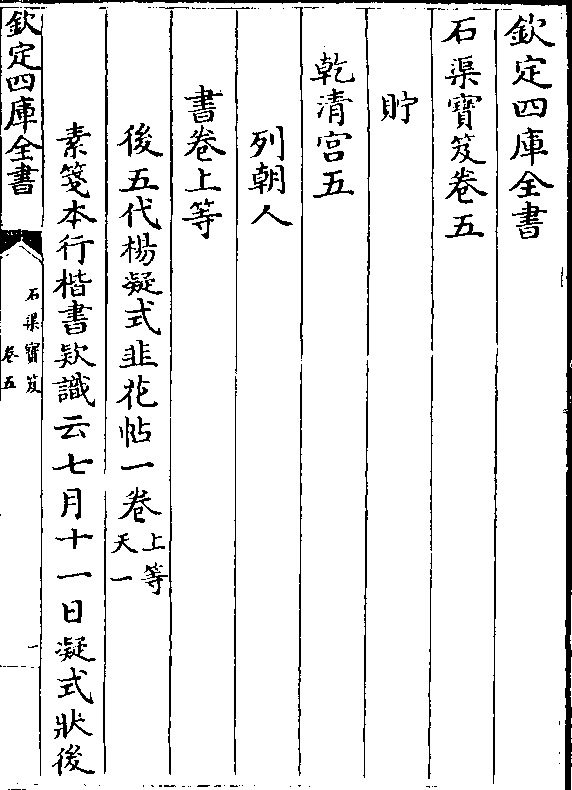 欽定四庫全書
石渠寳笈卷五
貯
乾清宫五
列朝人
書卷上等
後五代楊凝式韭花帖一卷 上等天一
素箋本行楷書欵識云七月十一日凝式狀後
欽定四庫全書
石渠寳笈
卷五
一